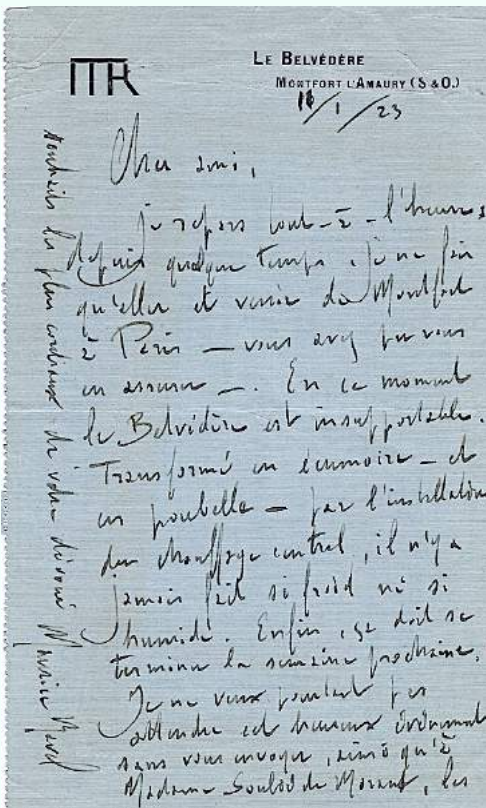 MR
LE BELVÉDÈRE
MONTFORT L'AMAURY (S & O.)
16/1/23
Cher ami,
je repars tout-à-l'heure;
depuis quelque temps, je ne fais
qu'aller et venir de Montfort
à Paris — vous avez pu vous
en assurer —. En ce moment
le Belvédère est insupportable.
Transformé en écumoire — et
en poubelle — par l'installation
du chauffage central, il n'y a
jamais fait si froid ni si
humide. Enfin, ça doit se
terminer la semaine prochaine.
Je ne veux pourtant pas
attendre cet heureux événement
sans vous envoyer, ainsi qu'à
Madame Soulié de Morant, les
souhaits les plus cordiaux de votre dévoué Maurice Ravel